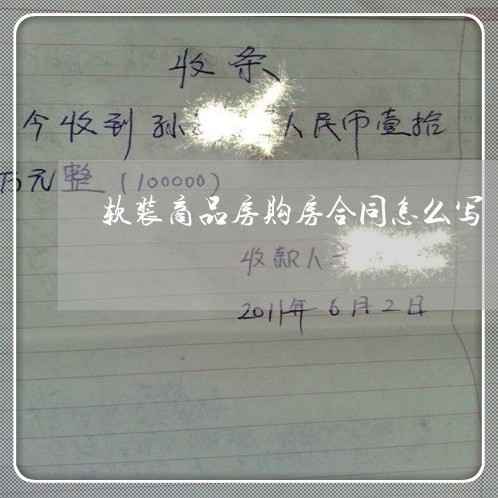 收条
今收到 孙 人民币壹拾
万元整（100000）
软装商品房购房合同怎么写
收款人
2011年6月2日